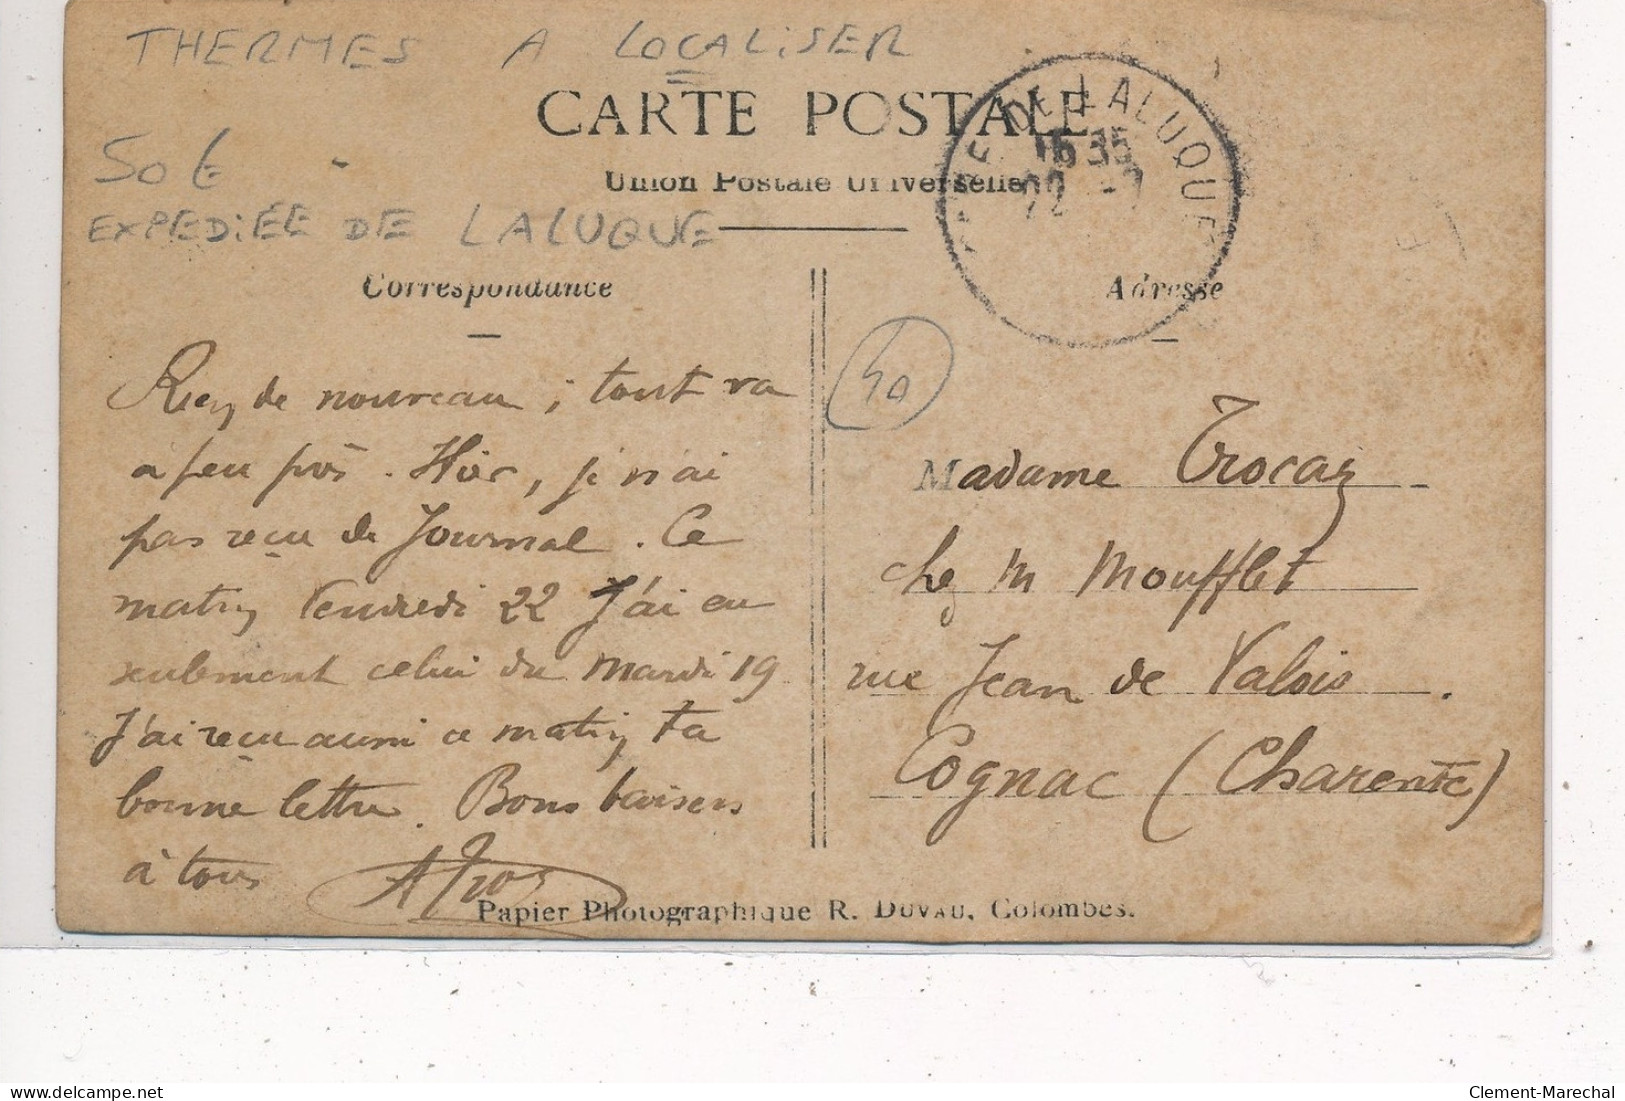 THERMES A LOCALISER
CARTE POSTALE
50 €
Union Postale Universelle
GARE DE LALUQUE
16 35
22 - 7
EXPEDIÉE DE LALUQUE
Correspondance
Rien de nouveau ; tout va
à peu près. Hier, je n'ai
pas reçu de Journal. Ce
matin Vendredi 22 J'ai eu
seulement celui du Mardi 19
J'ai reçu aussi ce matin ta
bonne lettre. Bons baisers
à tous
40
Adresse
Madame Trocaz
chez M Moufflet
rue Jean de Valois.
Cognac (Charente)
Papier Photographique R. DUVAU, Colombes.
Clement-Marechal